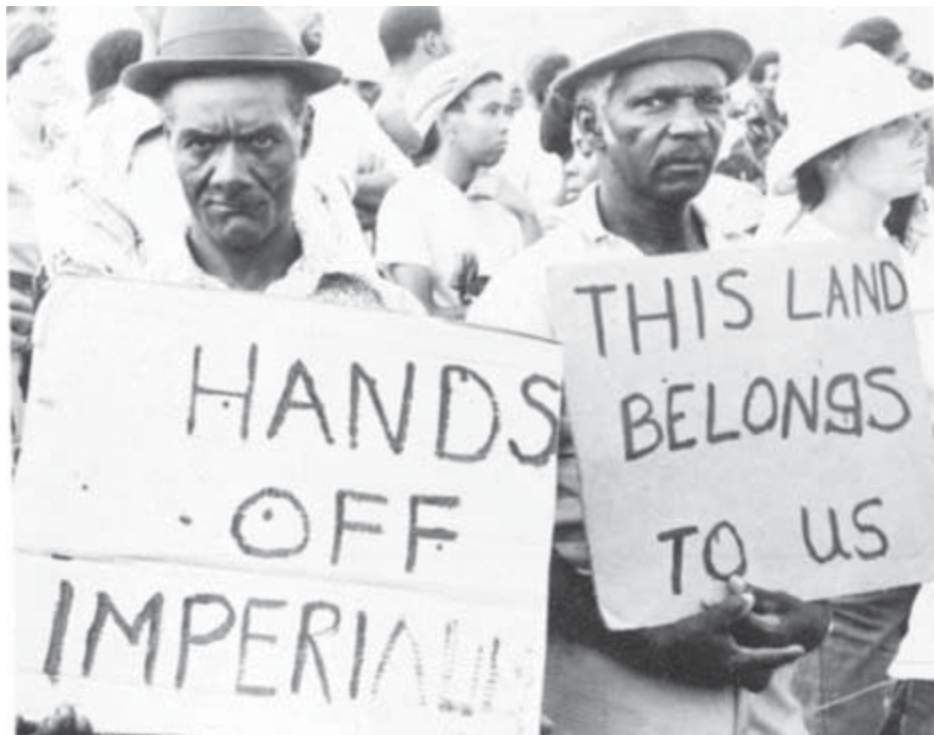 HANDS
OFF
IMPERIAL
THIS LAND
BELONGS
TO US